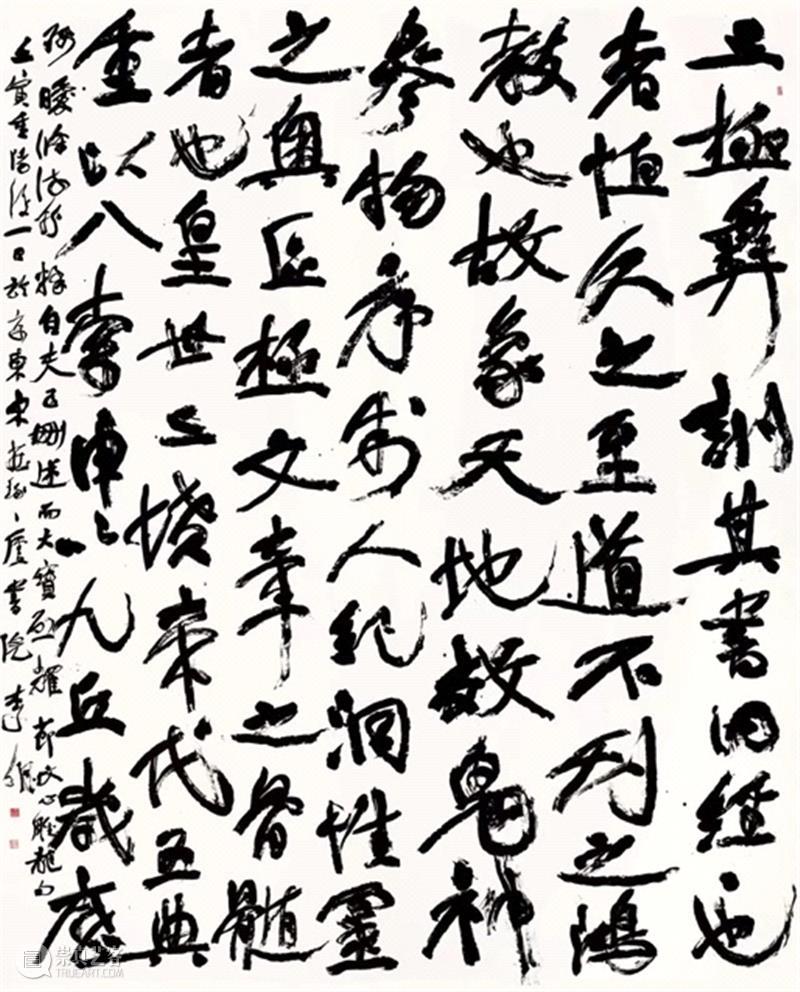 三極彝訓其書曰經也
者恒久之至道不刊之鴻
教也故象天地效鬼神
參物序制人紀洞性靈
之奧區極文章之骨髓
者也皇世三墳帝代五典
重以八索申以九丘歲歷
綿曖條流紛糅自夫子刪述而大寶啟耀節文心雕龍句
壬寅重陽後一日於京東宋莊廬書院李
崇真艺客
TRUEART.COM